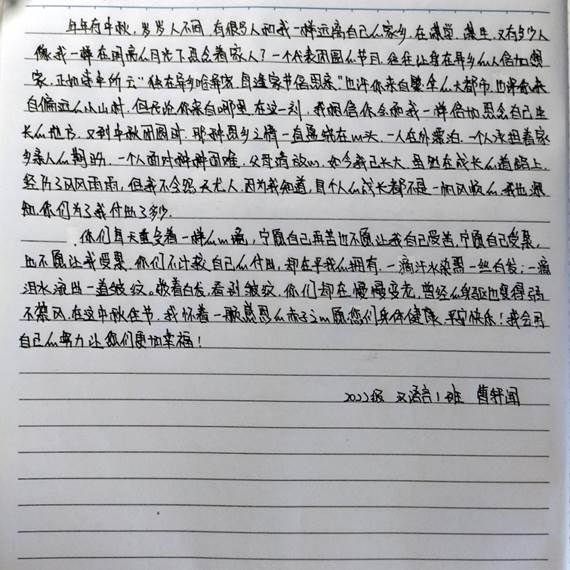 年年有中秋，岁岁人不同，有很多人和我一样远离自己的家乡，在满觉，满生，又有多少人
像我一样在闲亮的月光下思念着家人？一个代表团圆的节日，往往让身在异乡的人倍加想
家，正如诗中所云"独在异乡为异客，每逢家节倍思亲"也许你来自繁华的大都市，也许你来
自偏远的小山村，但无论你来自哪里，在这一刻，我相信你会和我一样倍加思念自己生
长的地方，又到中秋团圆时，那种思乡之情一直萦绕在心头，一人在外漂泊，一个人承担着家
乡亲人的期盼，一个人面对种种困难，父母请放心，如今我已长大，虽然在成长的道路上
经历了风风雨雨，但我不会怨天尤人，因为我知道，每个人的成长都不是一帆风顺的，我也深
知你们为了我付出了多少。
你们每天重复着一样的心痛，宁愿自己再苦也不愿让我自己受苦，宁愿自己受累，
也不愿让我受累，你们不计较自己的付出，却在乎我的拥有，一滴汗水染黑一丝白发；一滴
泪水流出一道皱纹。散着白发，看到皱纹，你们却在慢慢变老，曾经的身躯也变得弱
不禁风，在这中秋佳节，我怀着一颗感恩的赤子之心愿您们身体健康，平安快乐！我会用
自己的努力让你们更加幸福！
2022级 汉语言1班 曹轩闻